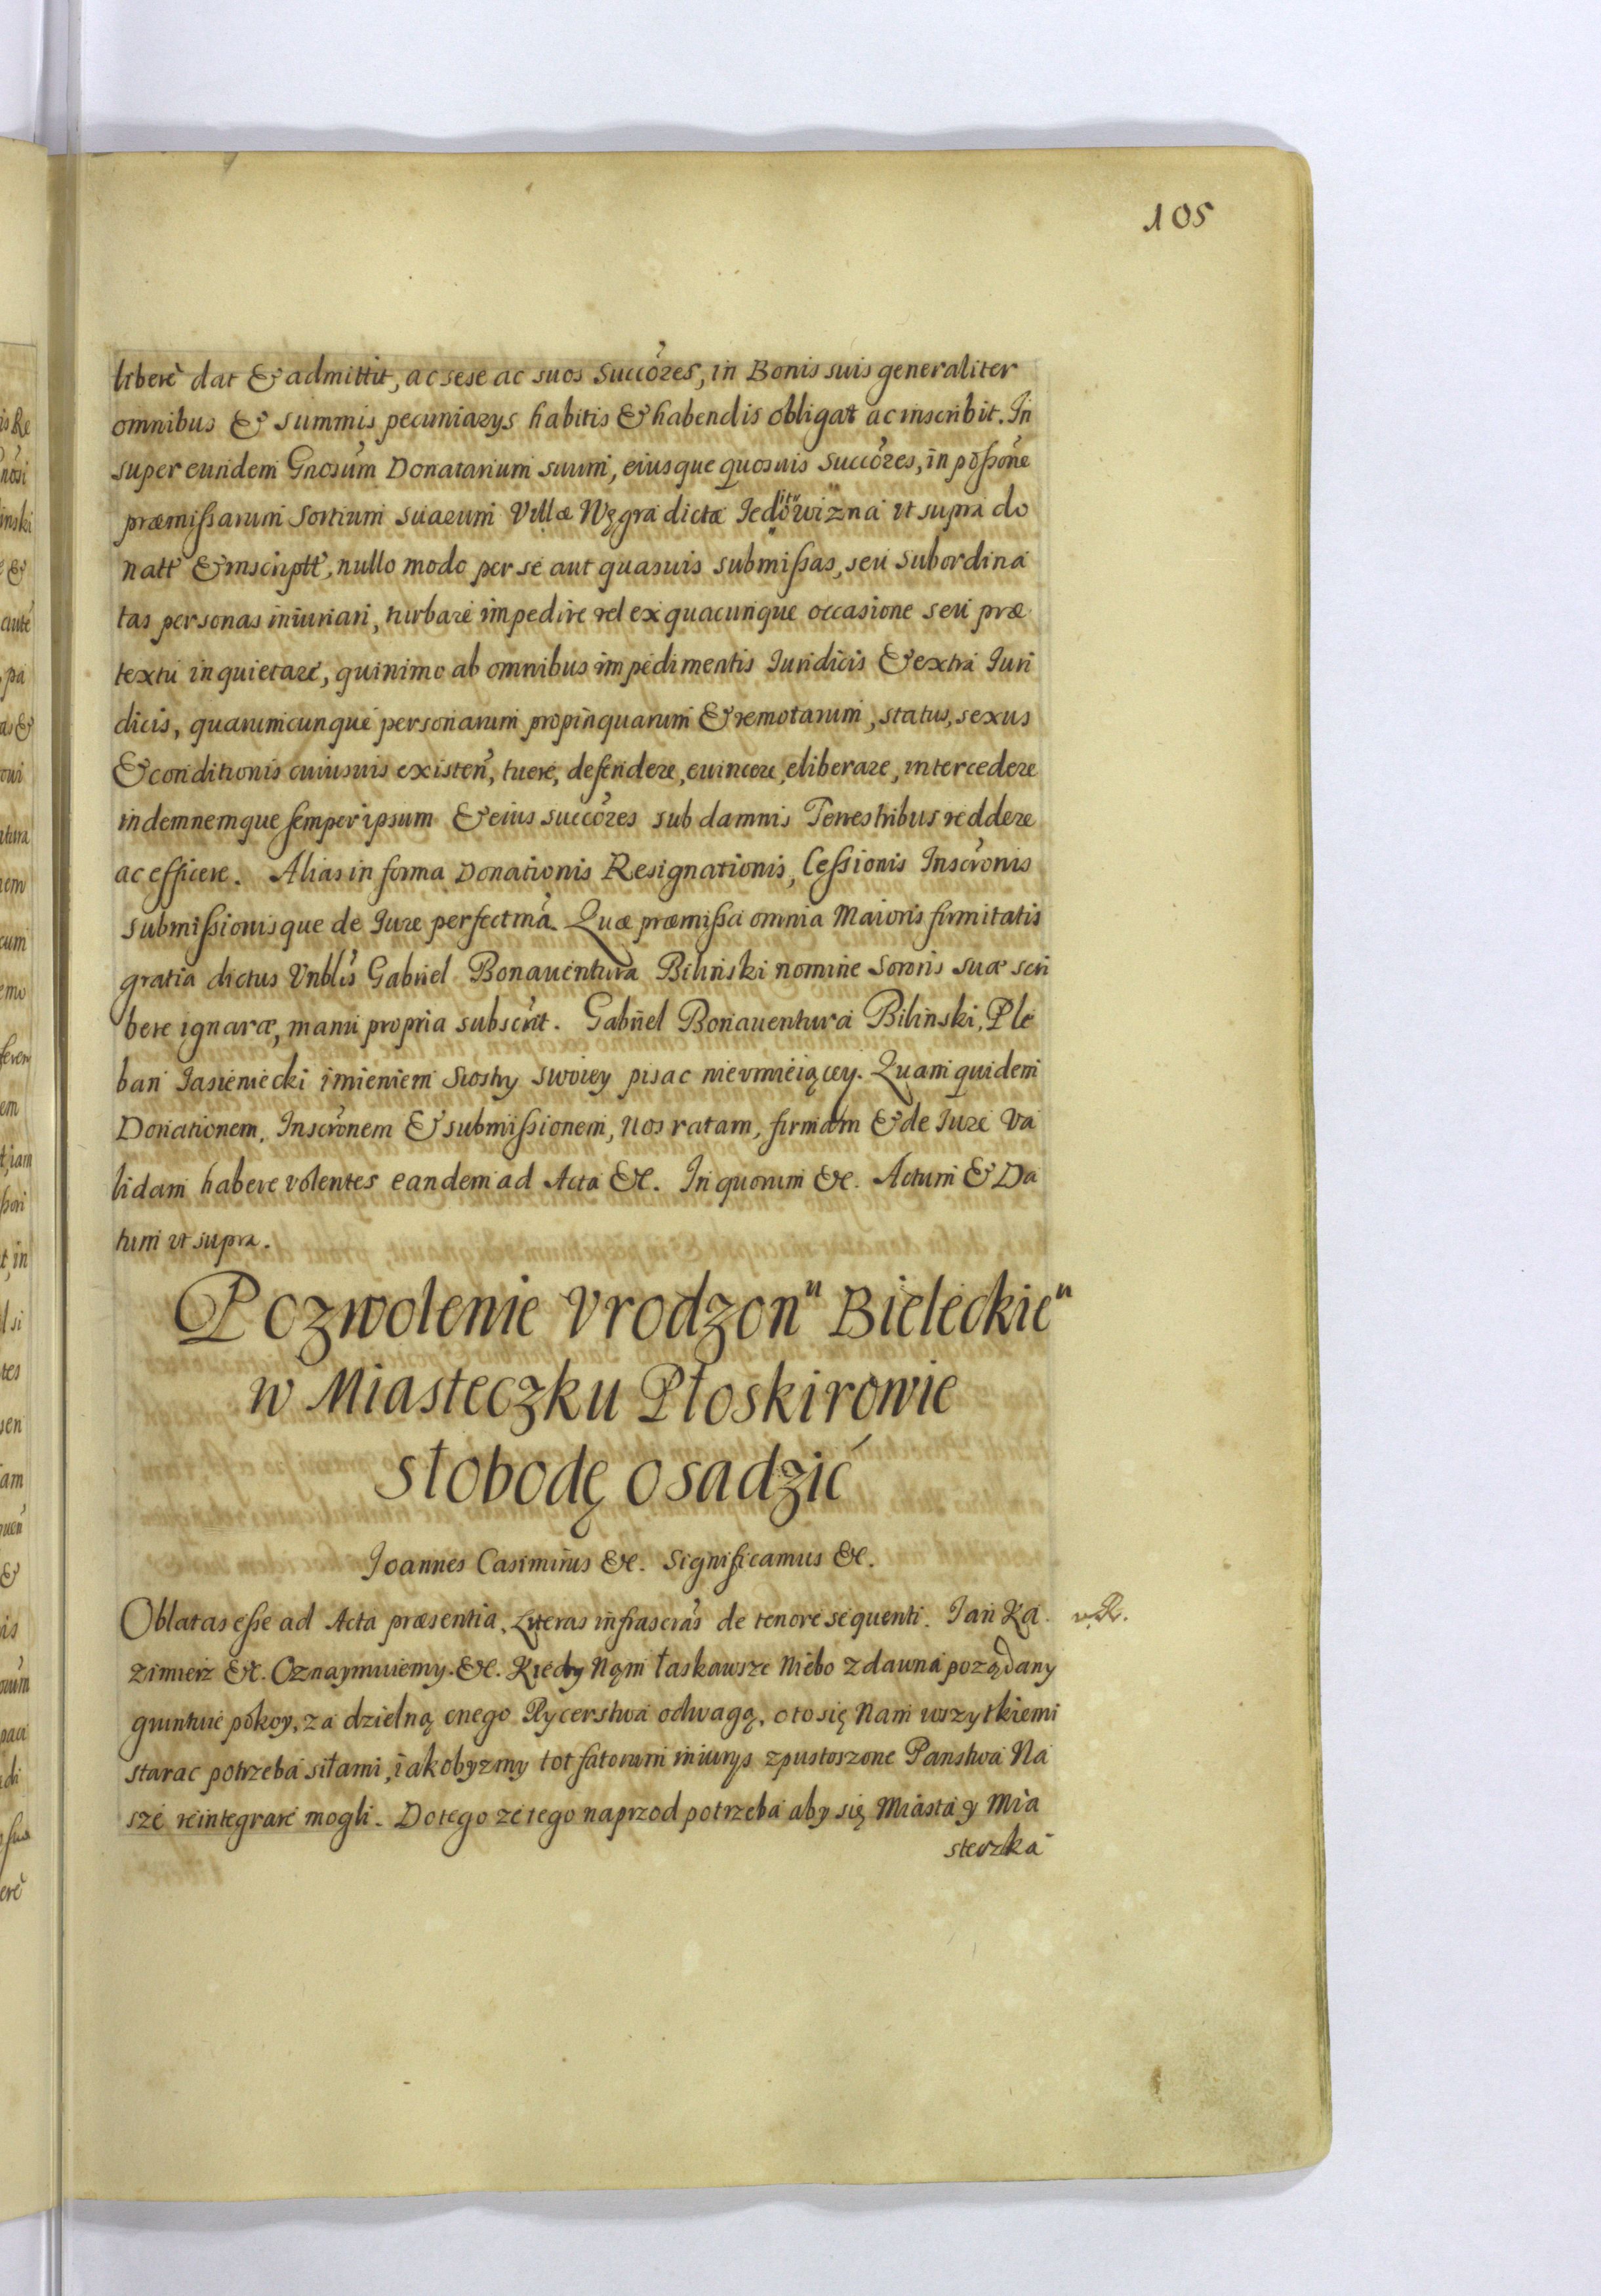 105
liberè dat & admittit, ac sese ac suos Succores, in Bonis suis generaliter
omnibus & summis pecuniarys habitis & habendis obligat ac inscribit. In
super eundem Gnosum Donatarium suum, eiusque quosuis Succores, in possone
præmissarum Sortium suarum Villæ Węgra dictæ ut supra do
natt & inscriptt, nullo modo per se aut quasuis submissas, seu subordina
tas personas iniuriari, turbare impedire vel ex quacunque occasione seu præ
textu inquietare, quinimo ab omnibus impedimentis Iuridicis & extra Iuri
dicis, quarumcunque personarum propinquarum & remotarum, status, sexus
& conditionis cuiusuis existen, tuere, defendere, euincere, eliberare, intercedere
indemnemque semper ipsum & eius succores sub damnis Terrestribus reddere
ac efficere. Alias in forma Donationis Resignationis, Cessionis Inscronis
submissionisque de Iure perfectma. Quæ præmissa omnia Maioris firmitatis
gratia dictus Vnblis Gabriel Bonauentura Biliński nomine Sororis suæ scri
bere ignaræ, manu propria subscrit. Gabriel Bonauentura Biliński, Ple
ban Jasieniecki imieniem Siostry swoiey pisac nieumieiącey. Quam quidem
Donationem, Inscronem & submissionem, nos ratam, firmam & de Iure va
lidam habere volentes eandem ad Acta &c. In quorum &c. Actum & Da
tum ut supra.
Pozwolenie Vrodzonu Bieleckieu
w Miasteczku Płoskirowie
słobodę osadzić
Joannes Casimirus &c. Significamus &c.
Oblatas esse ad Acta præsentia, Literas infrascras de tenore sequenti. Jan Ka
zimierz &c. Oznaymuiemy. &c. Kiedy Nam łaskawsze Niebo zdawna poządany
gruntuie pokoy, za dzielną cnego Rycerstwa odwagą, o to się Nam wszytkiemi
starac potrzeba siłami, iakobyzmy tot fatorum iniurys zpustoszone Panstwa Na
sze reintegrare mogli. Do tego ze tego naprzod potrzeba aby się Miasta y Mia
steczka